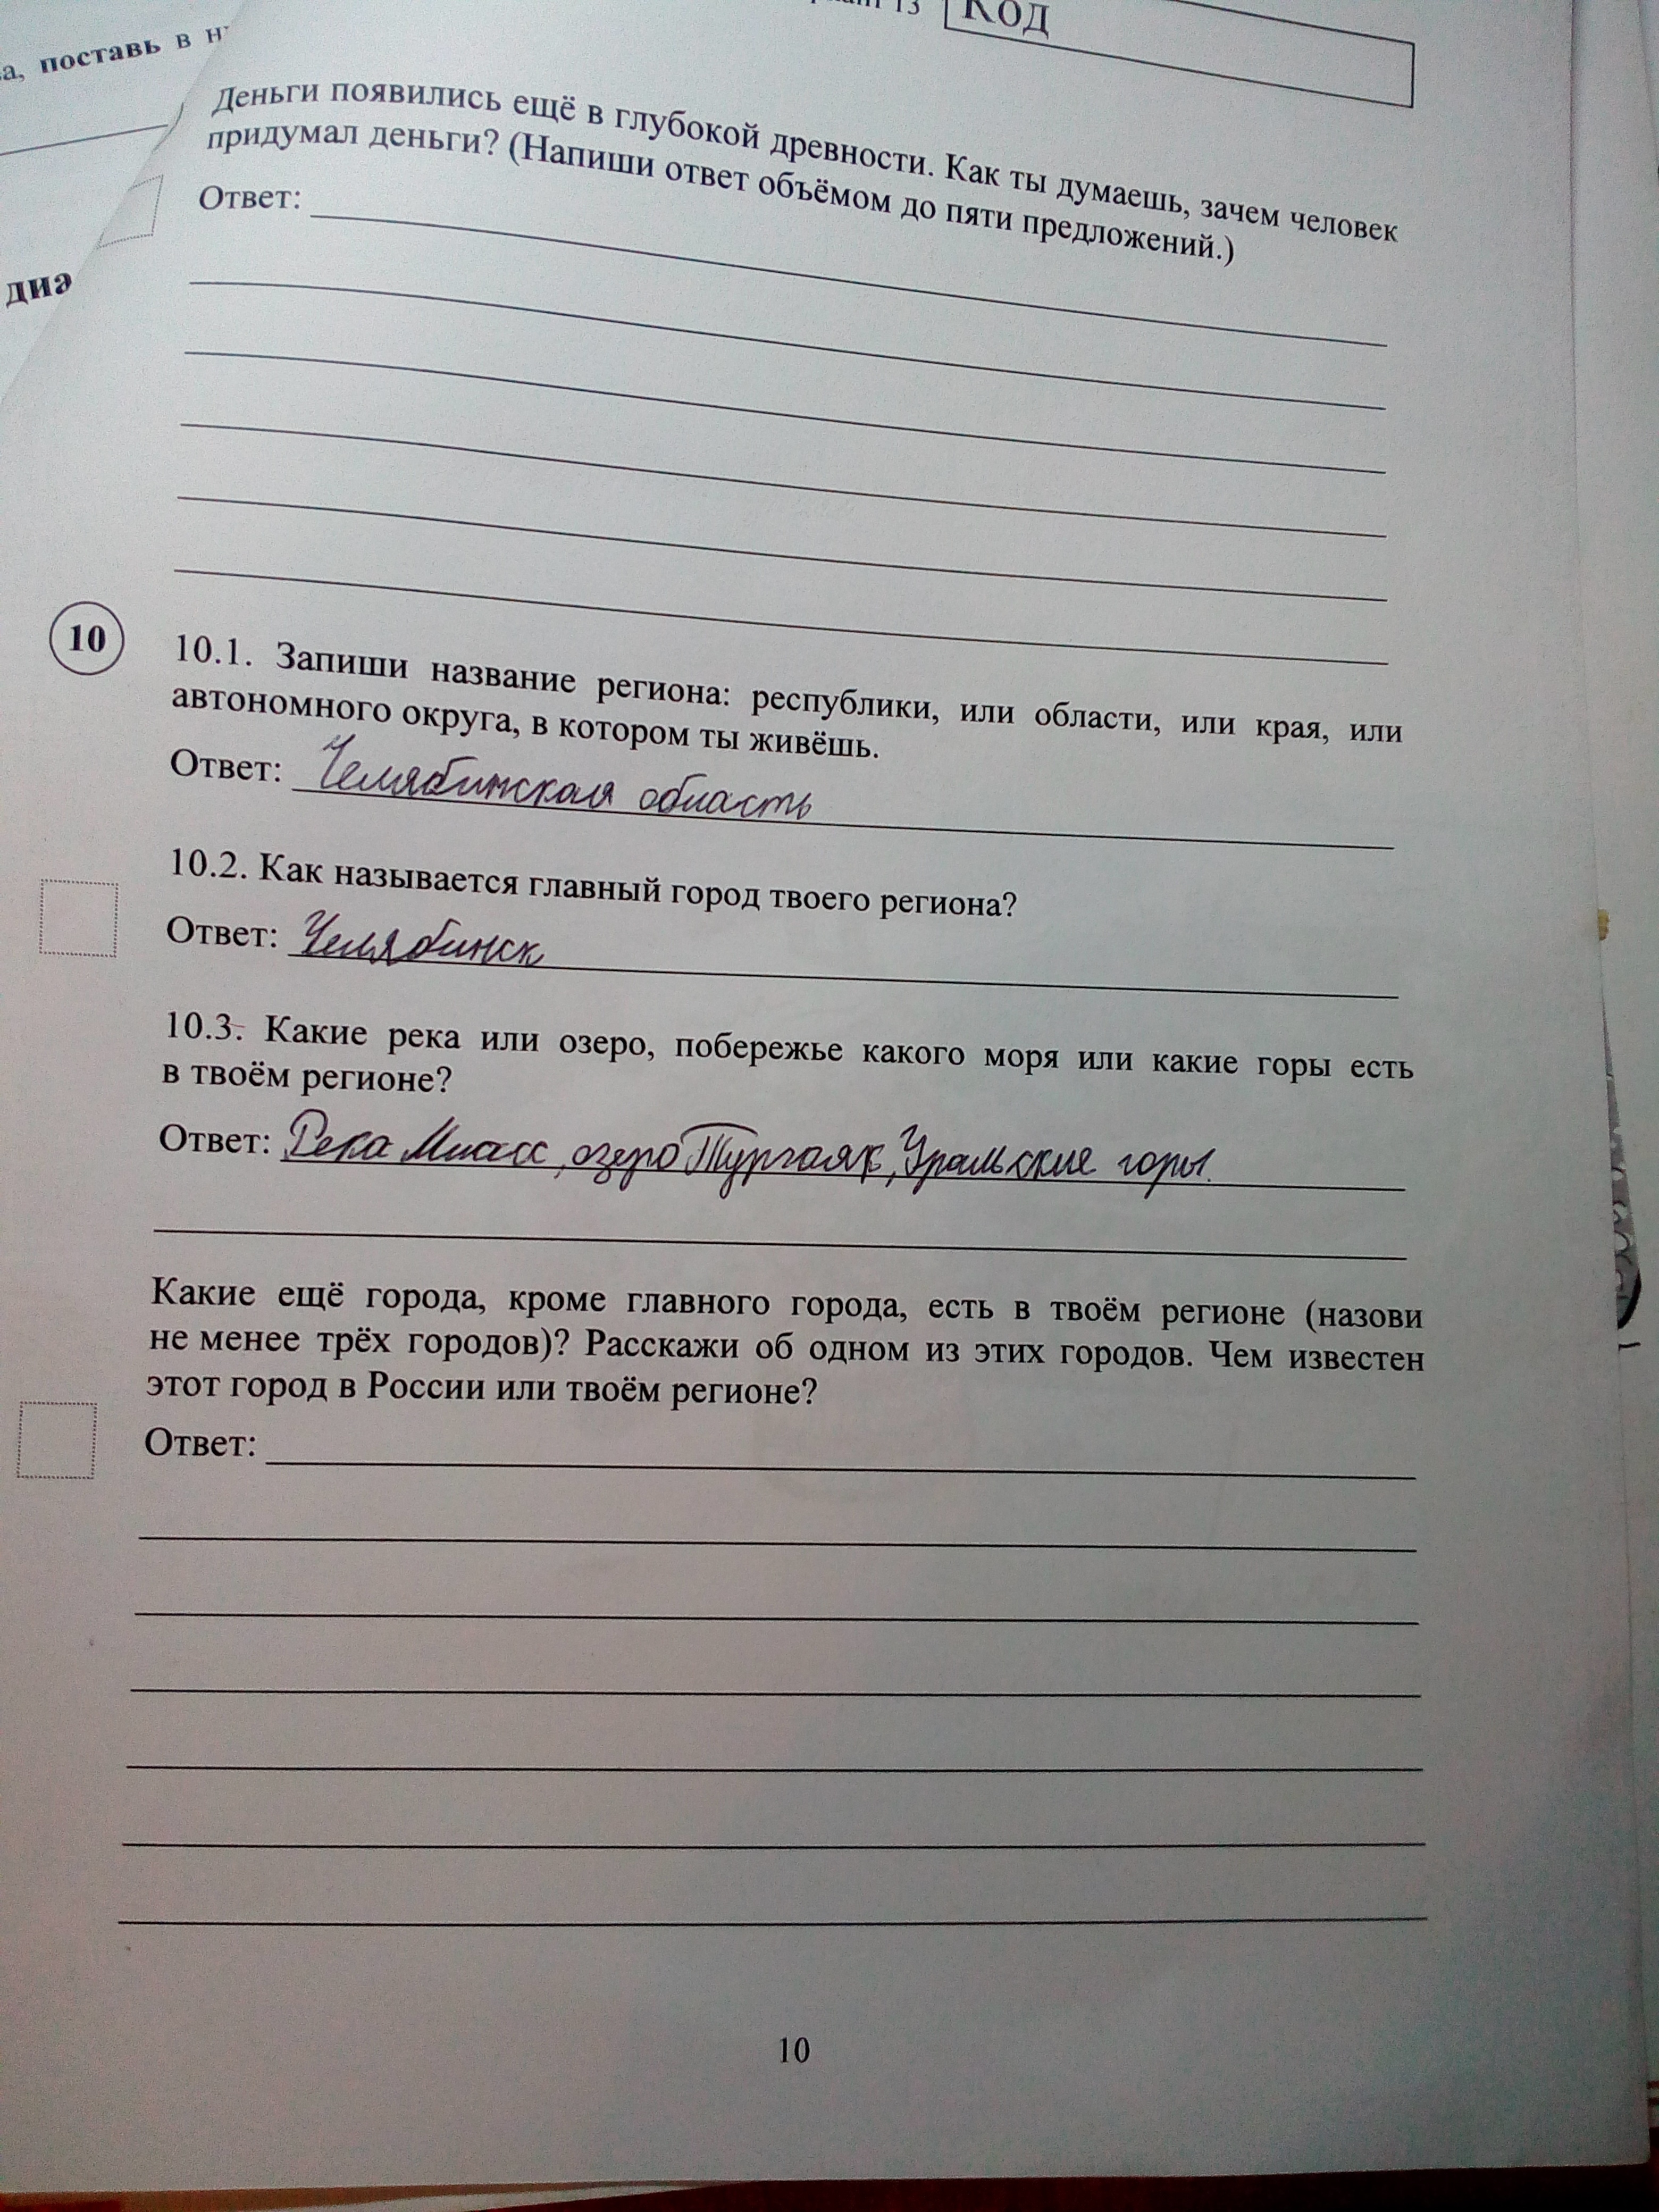 13 Код
поставь в
Деньги появились ещё в глубокой древности. Как ты думаешь, зачем человек
придумал деньги? (Напиши ответ объёмом до пяти предложений.)
Ответ:
10
10.1. Запиши название региона: республики, или области, или края, или
автономного округа, в котором ты живёшь.
Ответ: Челябинская область
10.2. Как называется главный город твоего региона?
Ответ: Челябинск
10.3. Какие река или озеро, побережье какого моря или какие горы есть
в твоём регионе?
Ответ: Река Миасс, озеро Тургояк, Уральские горы.
Какие ещё города, кроме главного города, есть в твоём регионе (назови
не менее трёх городов)? Расскажи об одном из этих городов. Чем известен
этот город в России или твоём регионе?
Ответ:
10